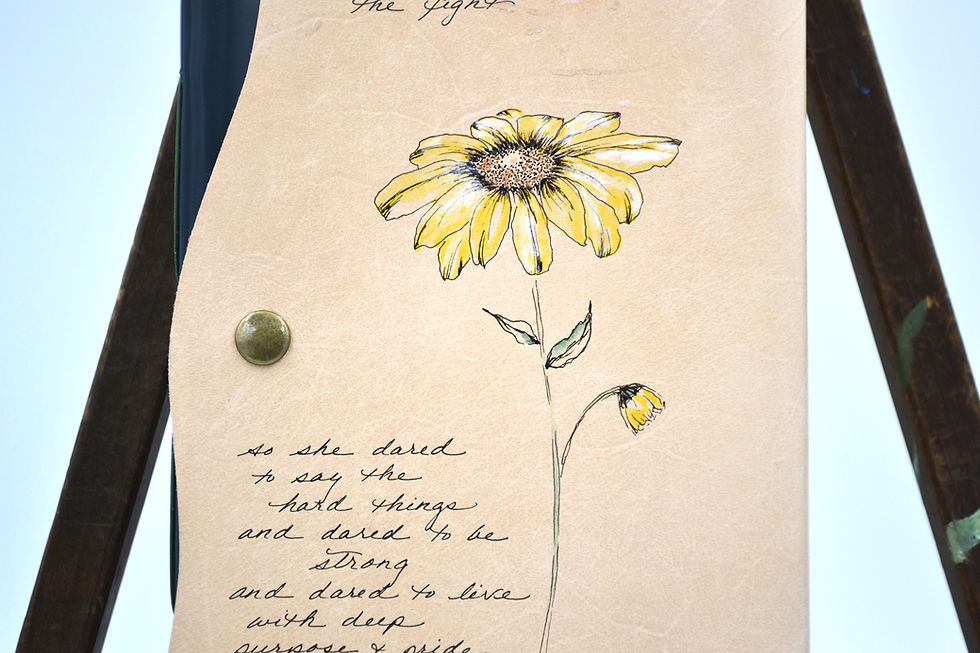 the fight
so she dared
to say the
hard things
and dared to be
strong
and dared to live
with deep
purpose & pride